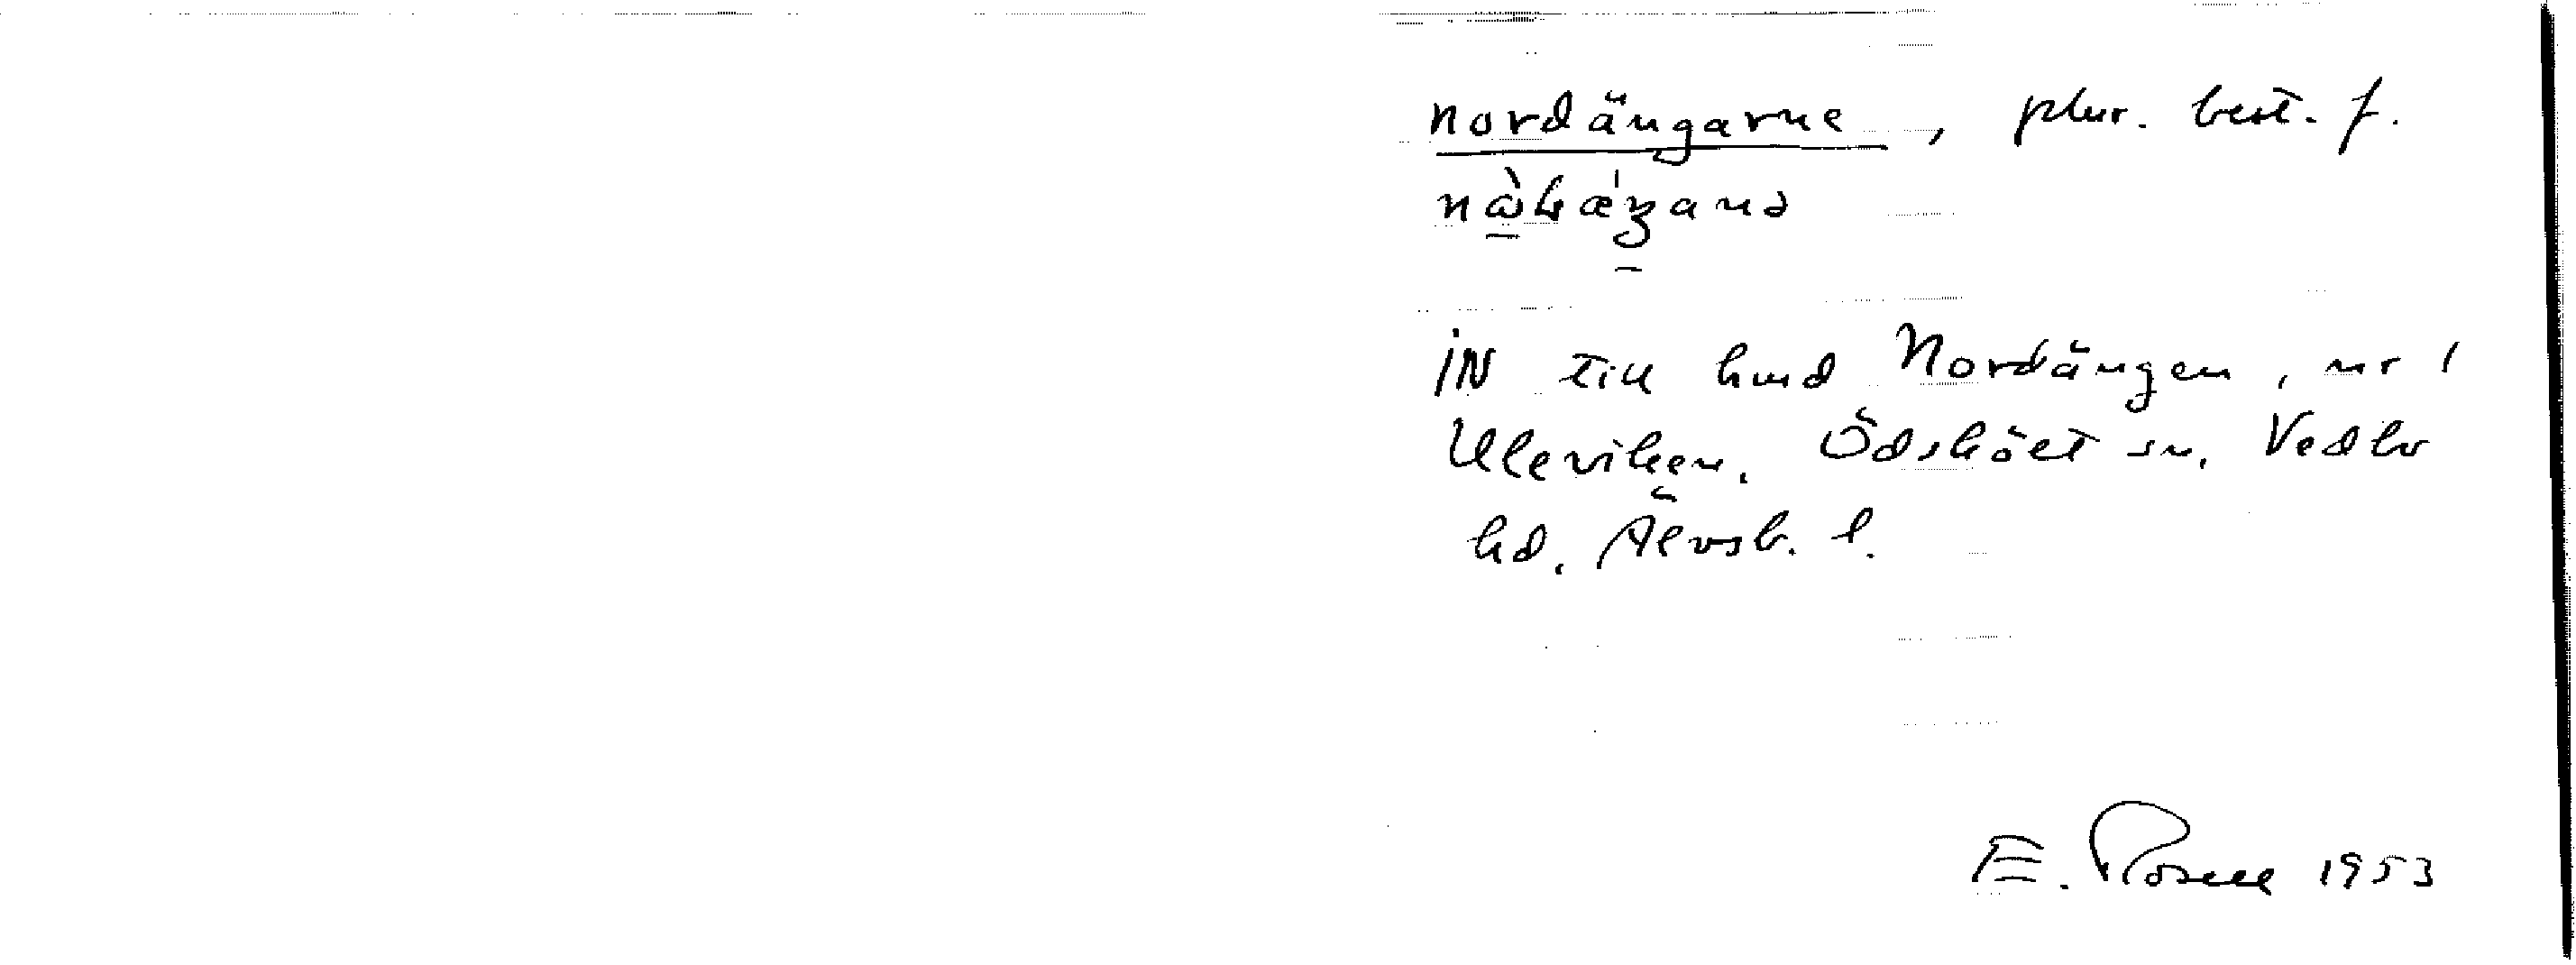 nordängarne, plur. best. f.
IN till hmd Nordängen, nr 1
Uleviken. Ödskölt sn, Vedbo
hd. Älvsb. l.
E. Rosell 1953